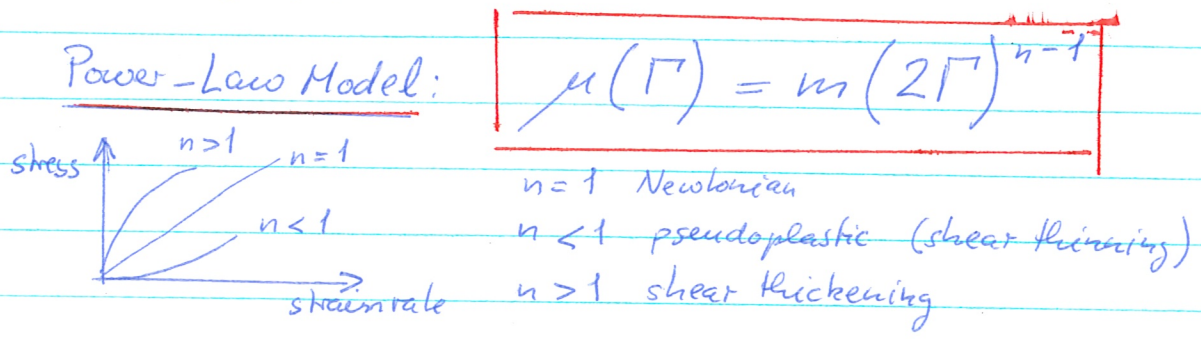 Power-Law Model: μ(Γ) = m(2Γ)^{n-1}
stress
n>1
n=1
n<1
strainrate
n=1 Newtonian
n<1 pseudoplastic (shear thinning)
n>1 shear thickening